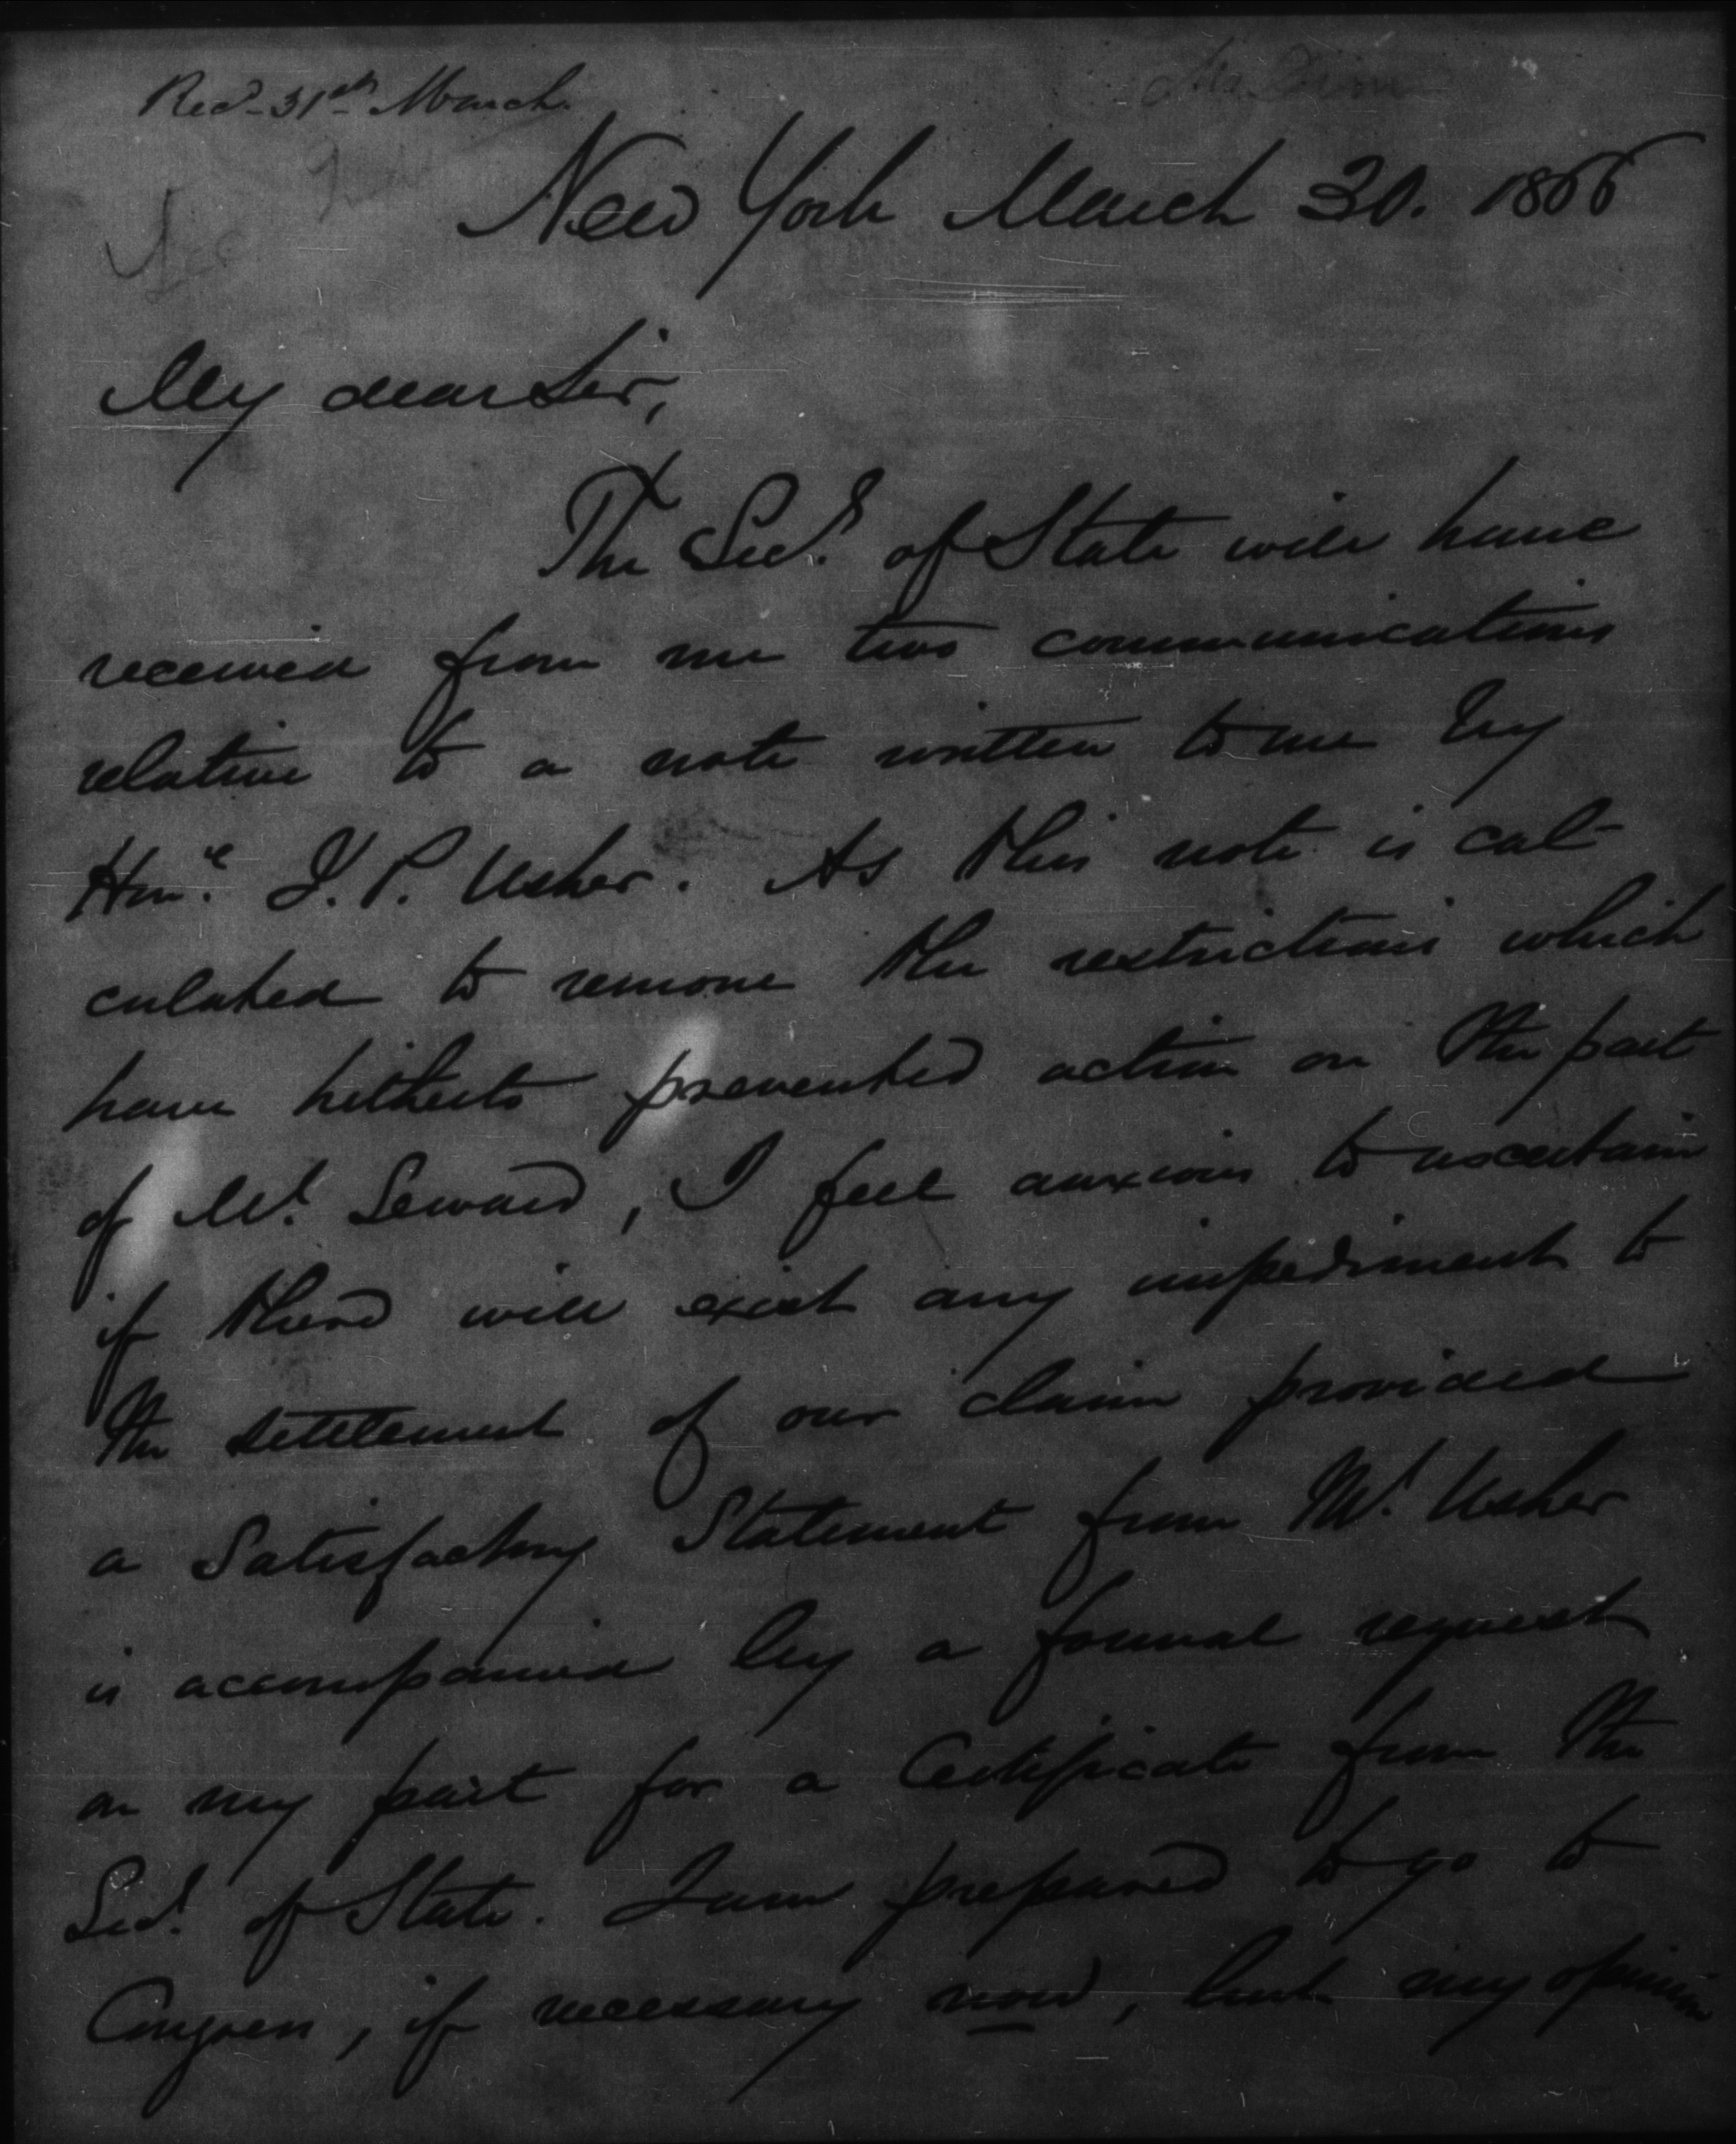 Recd. 31st March.
New York March 30. 1866
My dear Sir,
The Secy. of State will have
received from me two communications
relative to a note written to me by
Hon.e J. P. Usher. As this note is cal-
culated to remove the restrictions which
have hitherto prevented action on the part
of Mr. Seward, I feel anxious to ascertain
if there will exist any impediment to
the settlement of our claim provided
a Satisfactory Statement from Mr. Usher
is accompanied by a formal request
on my part for a Certificate from the
Secy. of State. I am prepared to go to
Congress, if necessary now, but my opinion